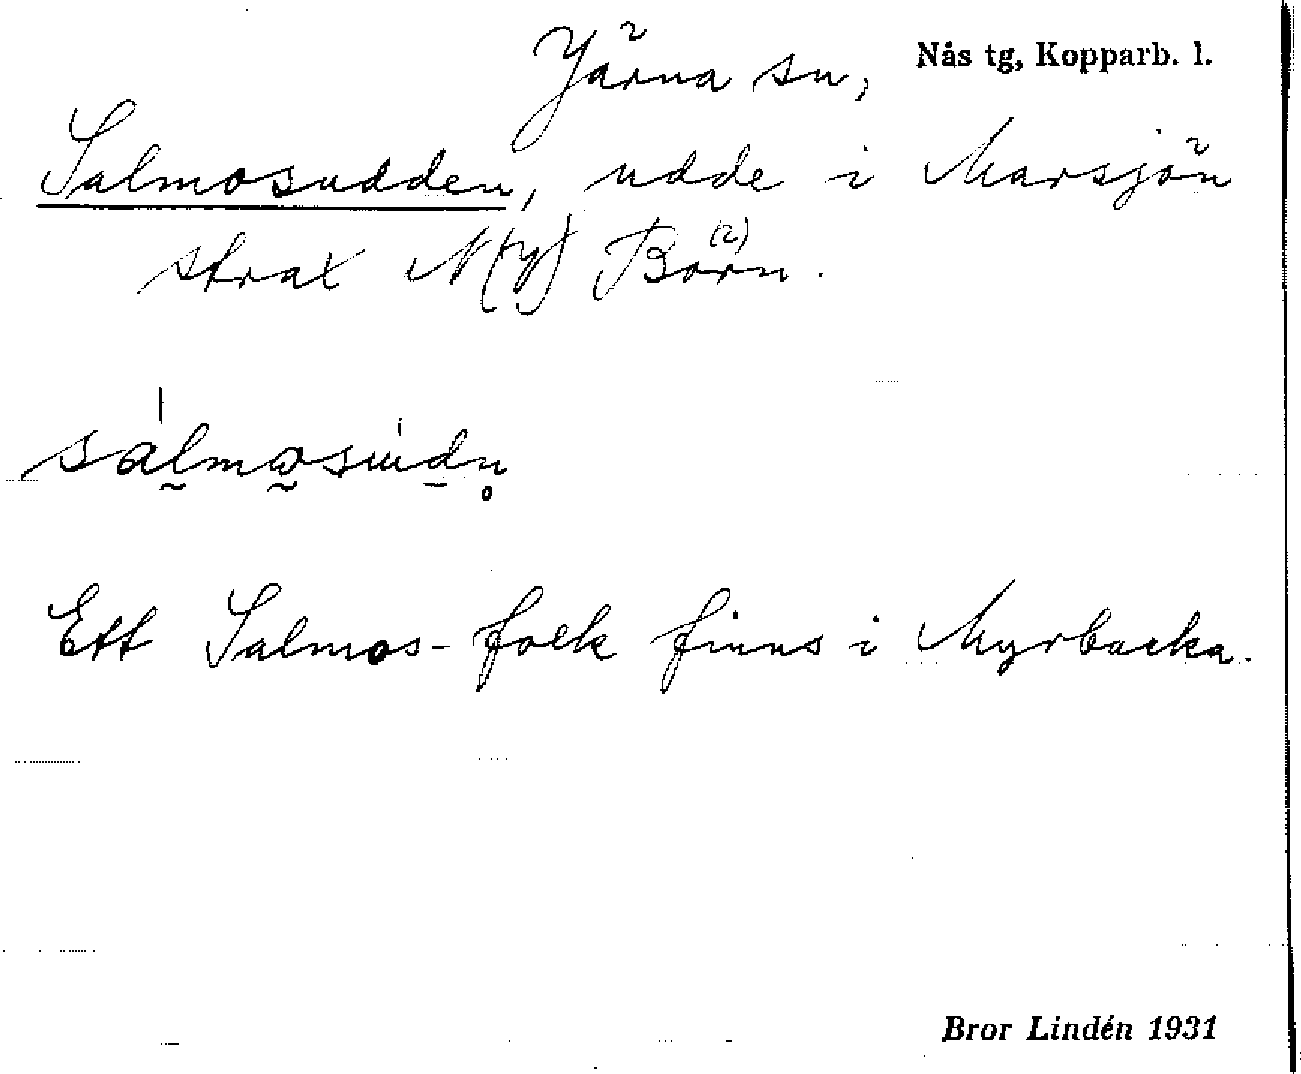 Järna sn, Nås tg, Kopparb. l.
Salmosudden, udde i Marsjön
strax N(y) Börn.
sálmosudn
Ett Salmos-folk finns i Myrbacka.
Bror Lindén 1931